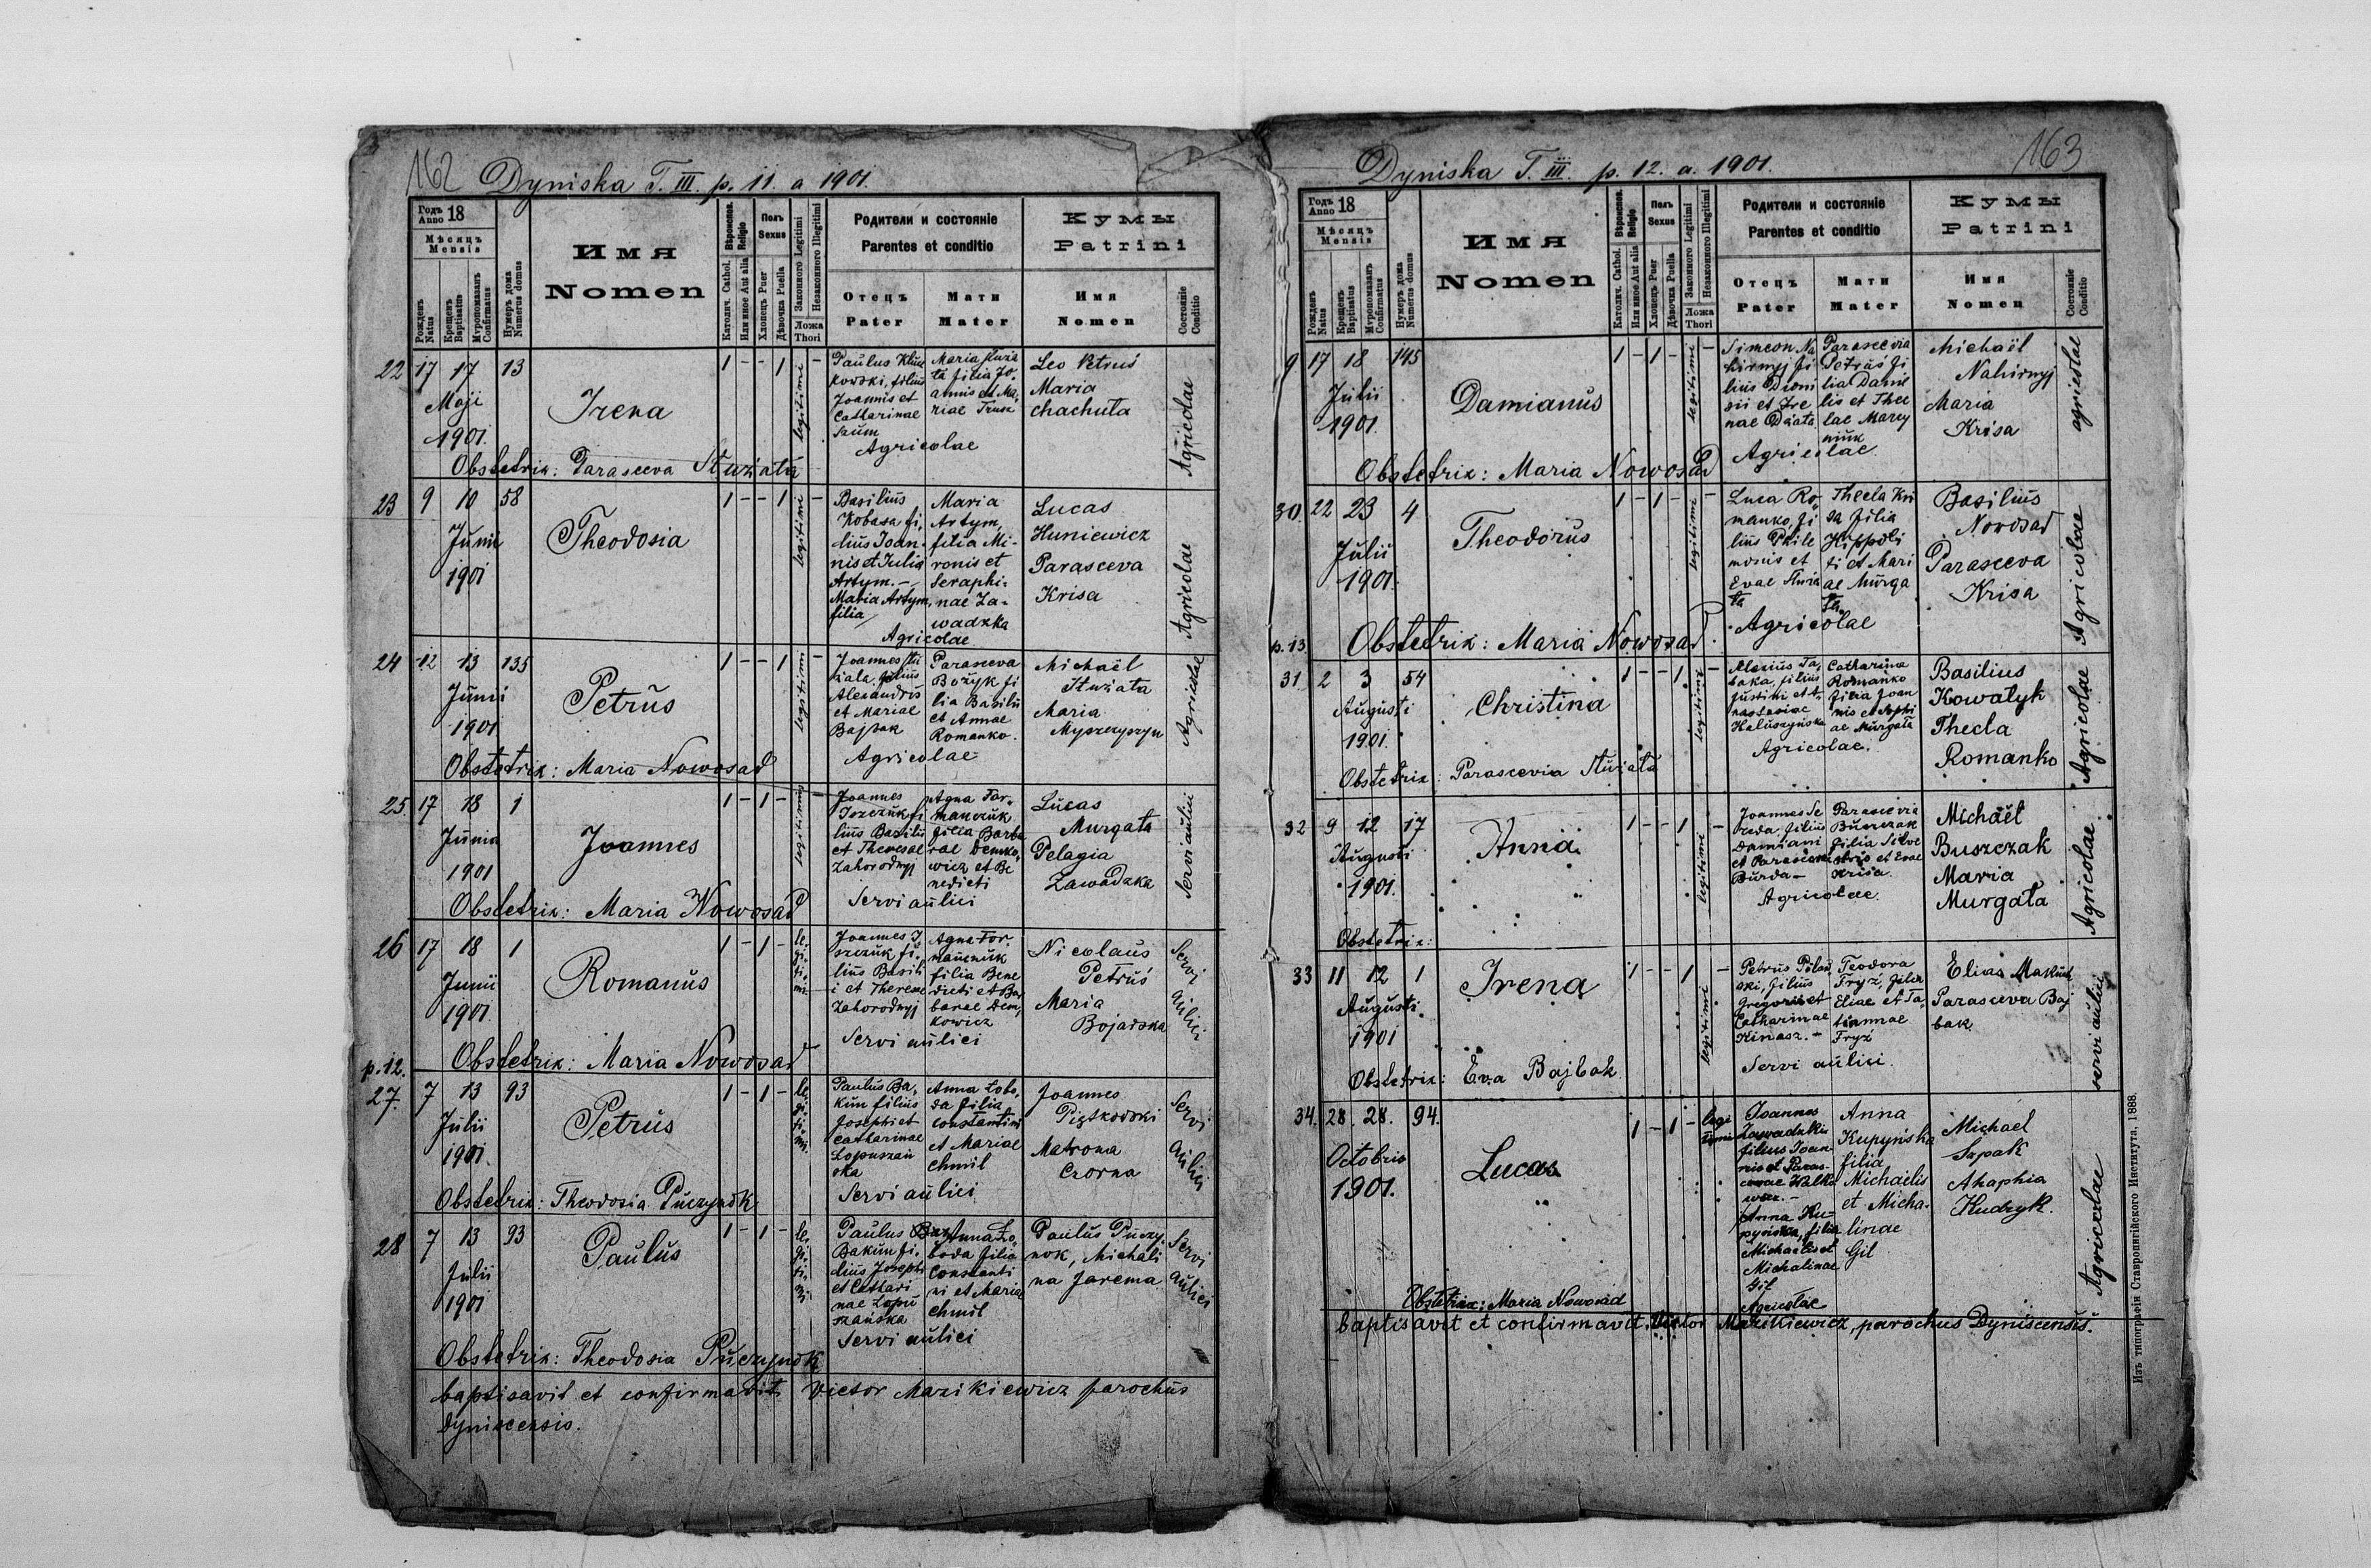 162 Dyniska T. III. p. 11. a 1901.
Годъ Anno 18
Мѣсяцъ
Mensis
Рожденъ Natus
Крещенъ Baptisatus
Мѵропомазанъ Confirmatus
Нумеръ дома Numerus domus
Имя
Nomen
Вѣроиспов. Religio
Католич. Cathol.
Или иное Aut alia
Полъ
Sexus
Хлопецъ Puer
Дѣвочка Puella
Законного Legitimi
Незаконного Illegitimi
Ложа
Thori
Родители и состояніе
Parentes et conditio
Отецъ
Pater
Мати
Mater
Кумы
Patrini
Имя
Nomen
Состояніе
Conditio
22 17 17 13
Maji
1901.
Irena
1 - - 1 legitimi -
Paulus Klim
kowski, filius
Joannis et
Catharinae
Saum
Maria Stuźa
ta filia Jo-
annis et Ma-
riae Trusz
Agricolae
Leo Petruś
Maria
Chachuta
Agricolae
Obstetrix: Parasceva Stuźata
23 9 10 58
Junii
1901
Theodosia
1 - - 1 legitimi -
Basilius
Kobasa fi-
lius Joan-
nis et Julia
Artym. -
Maria Artym,
filia
Maria
Artym,
filia Mi-
ronis et
Seraphi-
nae Za-
wadzka
Agricolae
Lucas
Huniewicz
Parasceva
Krisa
Agricolae
24 12 13 135
Junii
1901
Petrus
1 - - 1 legitimi -
Joannes Stu
źata, filius
Alexandris
et Mariae
Bajbak
Parasceva
Bożyk fi
lia Basilii
et Annae
Romanko.
Agricolae
Michaël
Stuźata
Maria
Myszczyszyn
Agricolae
Obstetrix: Maria Nowosad
25. 17 18 1
Junia
1901
Joannes
1 - 1 - legitimi -
Joannes
Iszczuk fi
lius Basilii
et Theresae
Zahorodnyj
Agna Tor-
manczuk
filia Barba
rae Demko-
wicz et Be
nedicti
Servi aulici
Lucas
Murgata
Pelagia
Zawadzka
Servi aulici
Obstetrix: Maria Nowosad
26 17 18 1
Junii
1901
Romanus
1 - 1 - le-
gi-
ti-
mi
Joannes I
szczuk fi-
lius Basili
i et Therese
Zahorodnyj
Agna Tor-
manczuk
filia Bene
dicti et Bar
barae Dem-
kowicz
Servi aulici
Nicolaus
Petruś
Maria
Bojarska
Servi
aulici
Obstetrix: Maria Nowosad
p. 12.
27. 7 13 93
Julii
1901.
Petrus
1 - 1 - le-
gi-
ti-
mi.
Paulus Ba-
kun filius
Josephi et
Catharinae
Lopuszań
ska
Anna Łobo-
da filia
Constantini
et Mariae
Chmil
Servi aulici
Joannes
Piątkowski
Matrona
Czorna
Servi
aulici
Obstetrix: Theodosia Puczynok
28 7 13 93
Julii
1901
Paulus
1 - 1 - le-
gi-
ti-
mi
Paulus
Bakun fi-
lius Josephi
et Cathari
nae Lopu
szańska
Anna Ło-
boda filia
Constanti
ni et Maria
Chmil
Servi aulici
Paulus Puczy-
nok, Michali
na Jarema
Servi
aulici
Obstetrix: Theodosia Puczynok
baptisavit et confirmavit Victor Mazikiewicz parochus
Dyniscensis.
Dyniska T. III. p. 12. a. 1901. 163
Годъ Anno 18
Мѣсяцъ
Mensis
Рожденъ Natus
Крещенъ Baptisatus
Мѵропомазанъ Confirmatus
Нумеръ дома Numerus domus
Имя
Nomen
Вѣроиспов. Religio
Католич. Cathol.
Или иное Aut alia
Полъ
Sexus
Хлопецъ Puer
Дѣвочка Puella
Законного Legitimi
Незаконного Illegitimi
Ложа
Thori
Родители и состояніе
Parentes et conditio
Отецъ
Pater
Мати
Mater
Кумы
Patrini
Имя
Nomen
Состояніе
Conditio
9 17 18 145
Julii
1901.
Damianus
1 - 1 - legitimi -
Simeon Na
hirnyj fi
lius Dioni
sii et Ire
nae Dżata
Parascevia
Petruś fi
lia Danie
lis et Thec
lae Marcy
niuk
Agricolae
Michaël
Nahirnyj
Maria
Krisa
agricolae
Obstetrix: Maria Nowosad
30. 22 23 4
Julii
1901.
Theodorus
1 - 1 - legitimi -
Luca Ro-
manko, fi
lius Phile
monis et
Evae Stuźa
ta
Thecla Kri
sa filia
Hippoli
ti et Mari
ae Murga
ta.
Agricolae
Basilius
Nowosad
Parasceva
Krisa
Agricolae
p. 13. Obstetrix: Maria Nowosad.
31. 2 3 54
Augusti
1901.
Christina
1 - - 1 legitimi -
Alexius Ta-
baka, filius
Justini et A-
nastasiae
Haluszyńska
Catharina
Romanko
filia Joan
nis et Sophi
ae Murgata
Agricolae.
Basilius
Kowalyk
Thecla
Romanko
Agricolae
Obstetrix: Parascevia Stuźata
32 9 12 17
Augusti
1901.
Anna
1 - - 1 legitimi -
Joannes Se
reda filius
Damiani
et Parascevi
Burda -
Parascevia
Buszczak
filia Silve
stris et Evae
Krisa.
Agricolae.
Michaël
Buszczak
Maria
Murgata
Agricolae
Obstetrix:
33 11 12 1
Augusti
1901
Irena
1 - - 1 legitimi -
Gregorii et
Catharinae
Kinasz. -
Teodora
Fryź, filia
Eliae et Ta-
tiannae
Fryź
Servi aulici.
Elias
Parasceva Baj
bak
servi aulici
Obstetrix: Eva Bajbak
34. 28. 28. 94.
Octobris
1901.
Lucas
1 - 1 - legi
timi
Joannes
Zawadzki
filius Joan-
nis et Paras-
cevae Walko
wicz. -
Anna Ku-
pyńska, filia
Michaelis et
Michalinae
Gil
Agricolae
Anna
Kupyńska
filia
Michaelis
et Micha-
linae
Gil
Michael
Sapak
Ahaphia
Kudryk.
Agricolae
Obstetrix: Maria Nowosad
baptisavit et confirmavit Victor Mazikiewicz, parochus Dyniscensis.
Изъ типографіи Ставропигійского Института, 1888.